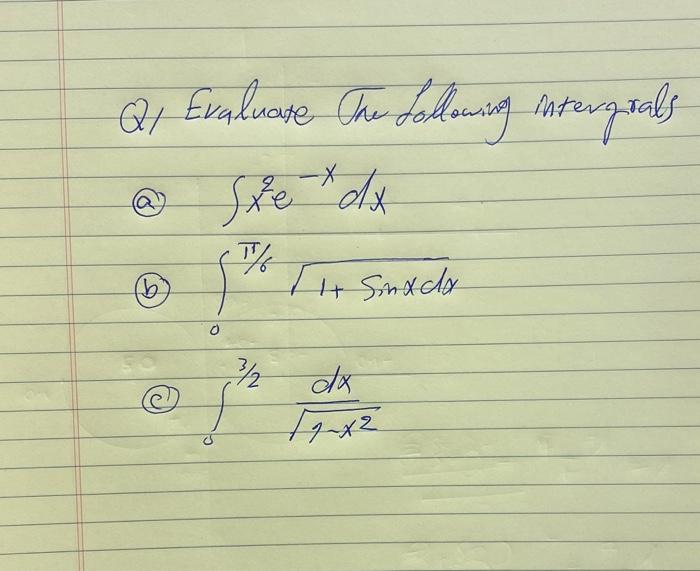 Q1 Evaluate The following intergrals
(a) ∫x²e^-x dx
(b) ∫₀^π/6 √1+ Sinxdx
(c) ∫₀^3/2 dx/√9-x²